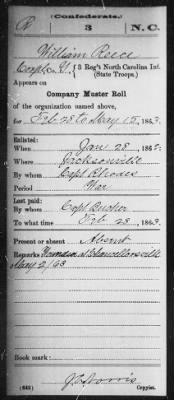 (Confederate.)
R 3 N.C.
William Reece
Corpl, Co. G, 3 Reg't North Carolina Inf.
(State Troops.)
Appears on
Company Muster Roll
of the organization named above,
for Feb 28 to May 15, 1863.
Enlisted:
When Jan 28, 186
Where Jacksonville
By whom Capt Rhodes
Period War
Last paid:
By whom Capt
To what time Feb 28, 1863.
Present or absent Absent
Remarks: Wounded at Chancellorsville
May 2/63
Book mark:
(642) Copyist.